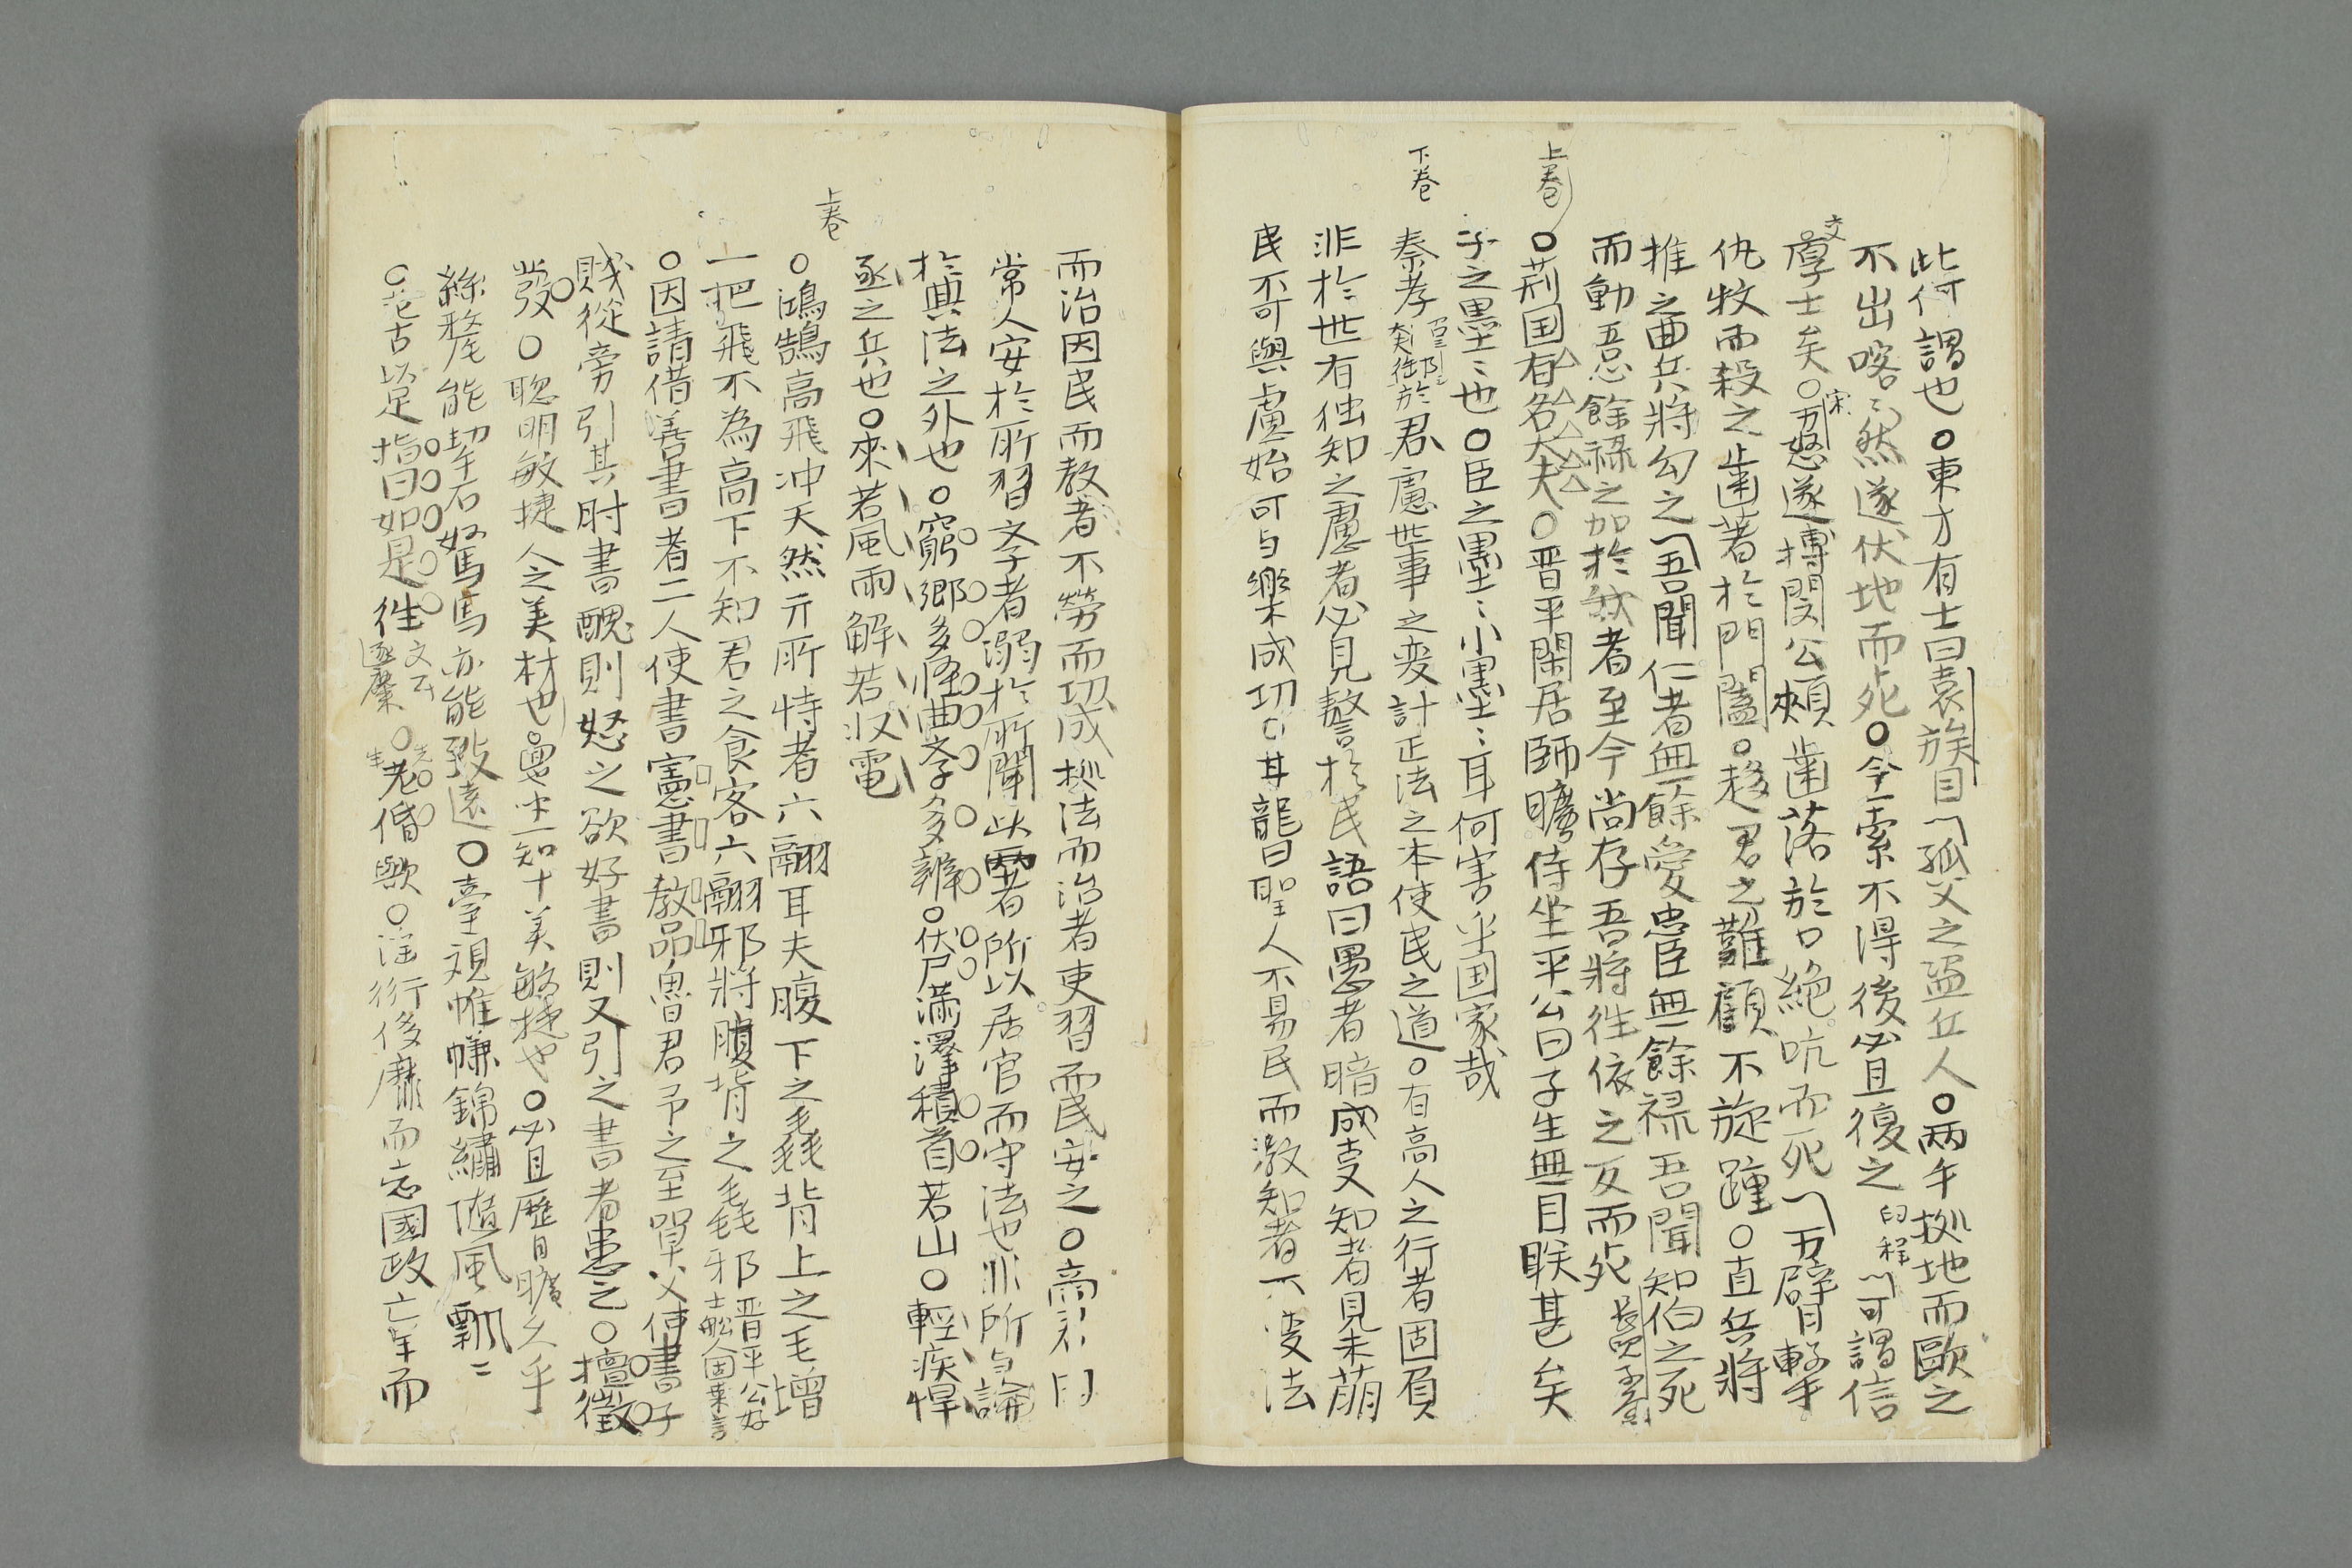 此何謂也○東方有士曰袁族目孤父之盜丘人○兩手拠地而歐之
不出喀〻然遂伏地而死○今索不得後必且復之臼程可謂信
厚士矣○宋万怒遂搏閔公頰歯落於口絶吭而死万臂擊
仇牧而殺之歯著於門闔○趍君之難顧不旋踵○直兵將
推之曲兵將勾之吾聞仁者無餘愛忠臣無餘禄吾聞知伯之死
而動吾余餘禄之加於者至今尚存吾將徃依之反而死
上巻
○荊国有名大夫○晋平閑居師曠侍坐平公曰子生無目眹甚矣
子之墨〻也○臣之墨〻小墨〻耳何害乎国家哉
下巻
秦孝於君慮世事之変計正法之本使民之道○有高人之行者固負
非於世有独知之慮者必見警於民語曰愚者暗成事知者見未萌
民不可與慮始可与樂成功○甘龍曰聖人不易民而教知者不変法
而治因民而教者不勞而功成拠法而治者吏習而民安之○
常人安於所習文学者溺於所聞此両者所以居官而守法也非所与論
於典法之外也○窮鄉多怪曲学多辨○伏尸滿澤積首若山○輕疾悍
亟之兵也○來若風雨解若収電
上巻
○鴻鵠高飛冲天然亓所恃者六翮耳夫腹下之毳背上之毛增
一把飛不為高下不知君之食客六翮邪將腹背之毳邪晋平公好士舩人固桑言
○因請借善書者二人使書憲書教品魯君予之至單父使書子
賎從旁引其肘書醜則怒之欲好書則又引之書者患之○擅徵
發○聡明敏捷人之美材也○必且歷日曠久乎
絲氂能挈石駑馬亦能致遠○臺視帷幪錦繡隨風飄〻
○古以足指曰如是徃文云逐麋○老惛歟○淫衍侈靡而忘國政亡年而